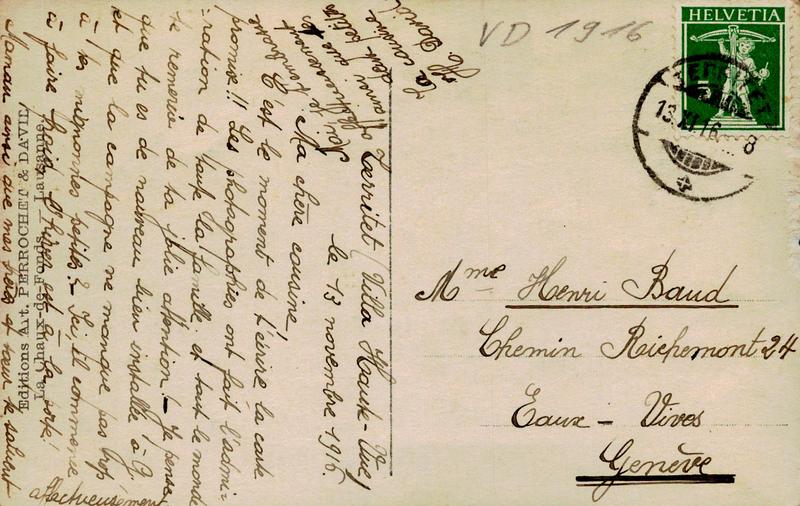 VD 1916
HELVETIA
5
TERRITET
13.XI.16. 8
Territet (Villa Haute-Vue)
le 13 novembre 1916.
Ma chère cousine,
C'est le moment de t'écrire la carte
promise!! Les photographies ont fait l'admi-
ration de toute la famille et tout le monde
te remercie de ta jolie attention! – Je pense
que tu es de nouveau bien installée à G.
et que la campagne ne manque pas trop
à tes mignonnes petites? – Ici, il commence
à faire froid, l'hiver est à la porte!
Maman ainsi que mes frères et sœur te saluent
affectueusement
ta cousine
Mme Henri Baud
Chemin Richemont 24
Eaux – Vives
Genève
Editions Art. PERROCHET & DAVID
La Chaux-de-Fonds – Lausanne